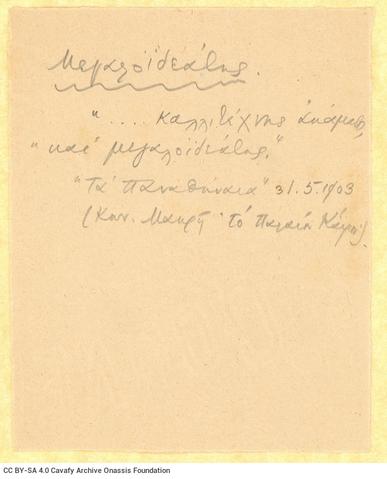 Μεγαλοϊδεάτης.
".... καλλιτέχνης
"καί μεγαλοϊδεάτης."
"Τά Παναθήναια" 31.5.1903
(Κων. Μακρῆ· τό Παλαιόν
CC BY-SA 4.0 Cavafy Archive Onassis Foundation